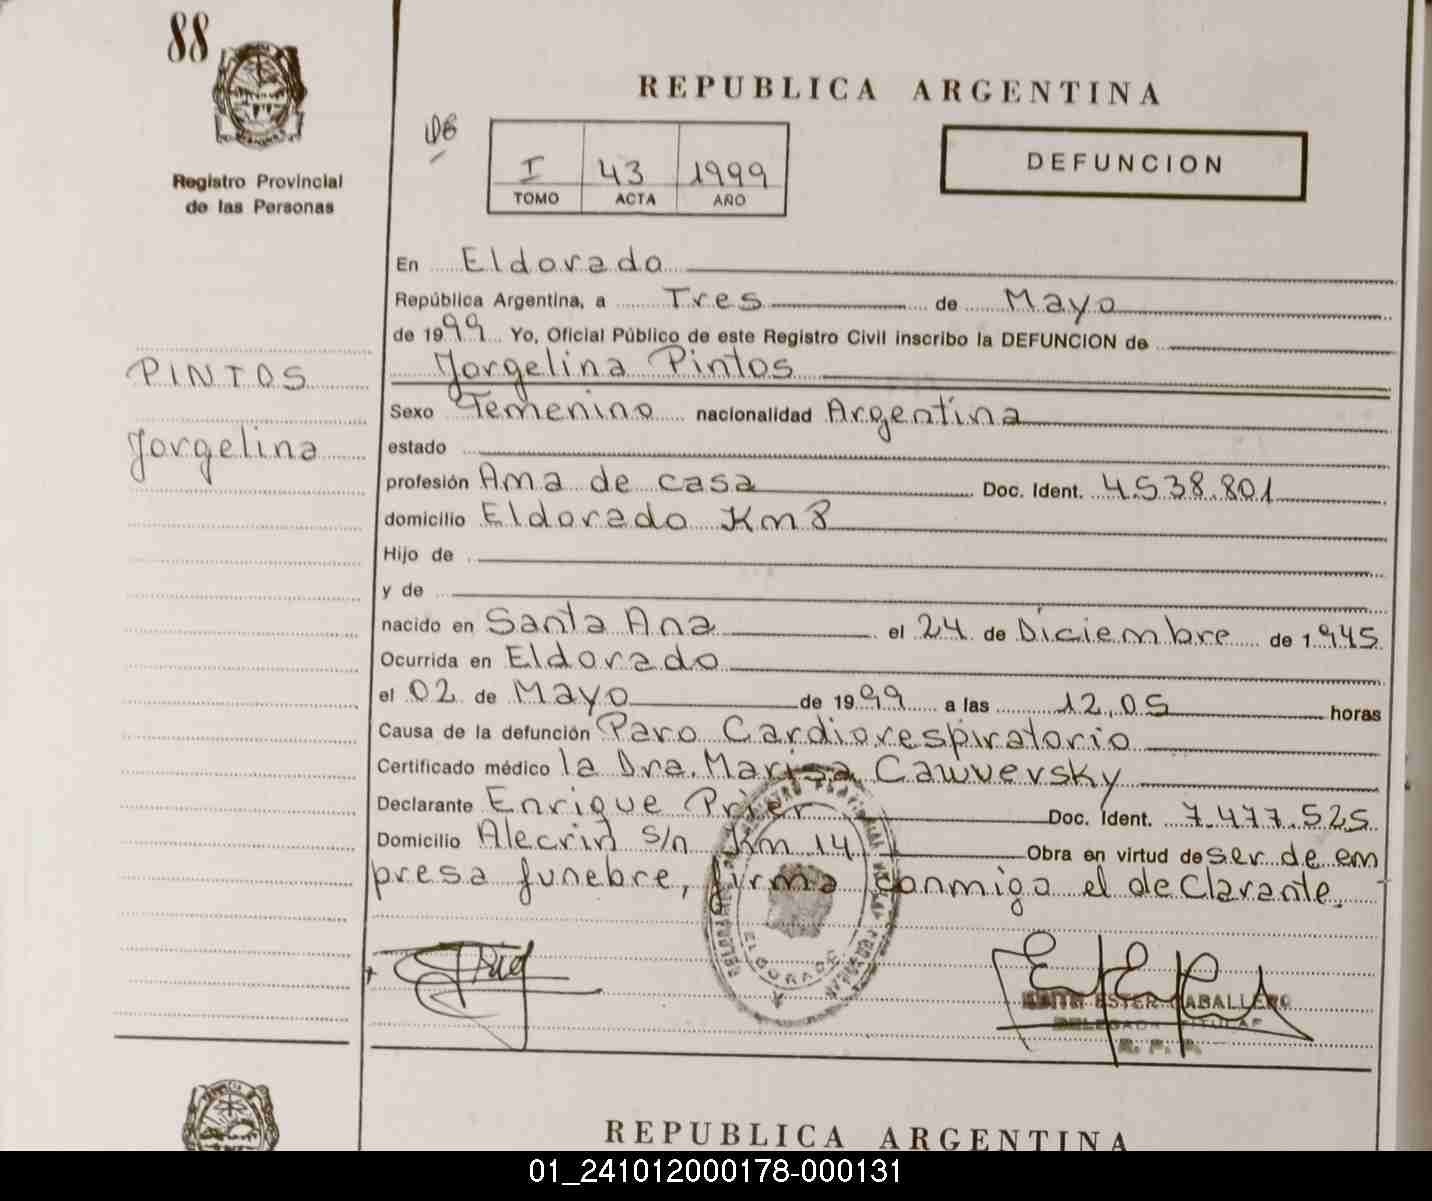 88
REPUBLICA ARGENTINA
Registro Provincial
de las Personas
I 43 1999
TOMO ACTA AÑO
DEFUNCION
En Eldorado
República Argentina, a Tres de Mayo
de 1999 Yo, Oficial Público de este Registro Civil inscribo la DEFUNCION de
PINTOS
Jorgelina
Jorgelina Pintos
Sexo Femenino nacionalidad Argentina
estado
profesión Ama de casa Doc. Ident. 4.538.801
domicilio Eldorado Km 8
Hijo de
y de
nacido en Santa Ana el 24 de Diciembre de 1.945
Ocurrida en Eldorado
el 02 de Mayo de 1999 a las 12,05 horas
Causa de la defunción Paro Cardiorespiratorio
Certificado médico la Dra. Marisa Cawversky
Declarante Enrique Prier Doc. Ident. 7.477.525
Domicilio Alecrin s/n Km 14 Obra en virtud de ser de em
presa funebre, firma conmigo el declarante.
ELDORADO
ESTER CABALLERO
DELEGADA TITULAR
R. P. P.
REPUBLICA ARGENTINA
01_241012000178-000131